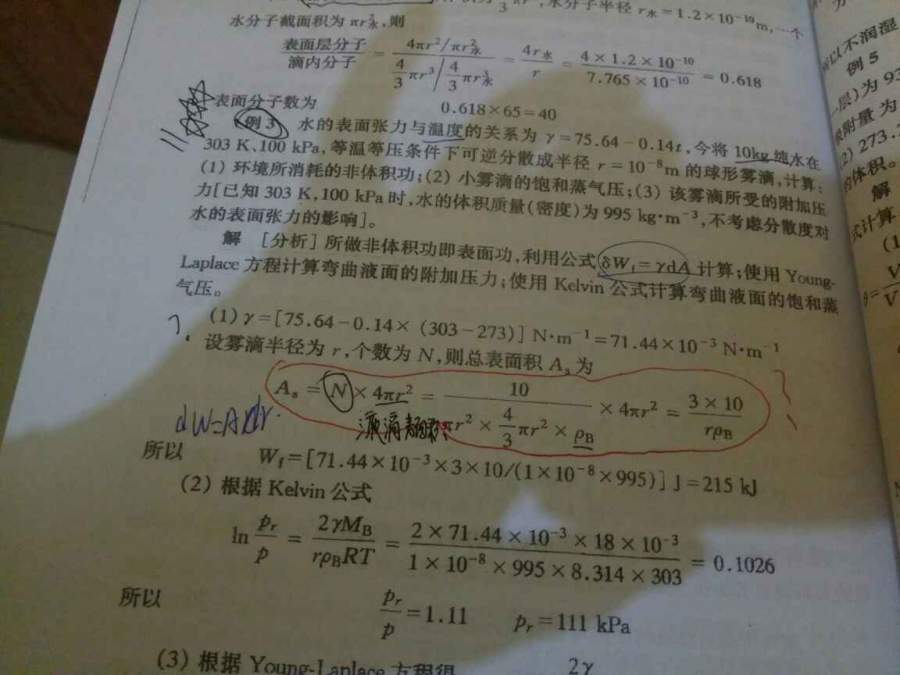 水分子半径 r水=1.2×10⁻¹⁰m,一个
水分子截面积为 πr²水,则
表面层分子/滴内分子 = (4πr²/πr²水)/(4/3 πr³/4/3 πr³水) = 4r水/r = 4×1.2×10⁻¹⁰/7.765×10⁻¹⁰ = 0.618
表面分子数为 0.618×65=40
例3 水的表面张力与温度的关系为 γ=75.64-0.14t,今将 10kg 纯水在
303 K、100 kPa,等温等压条件下可逆分散成半径 r=10⁻⁸m 的球形雾滴,计算:
(1) 环境所消耗的非体积功;(2) 小雾滴的饱和蒸气压;(3) 该雾滴所受的附加压
力[已知 303 K,100 kPa 时,水的体积质量(密度)为 995 kg·m⁻³,不考虑分散度对
水的表面张力的影响]。
解 [分析] 所做非体积功即表面功,利用公式 δWf=γdA 计算;使用 Young-
Laplace 方程计算弯曲液面的附加压力;使用 Kelvin 公式计算弯曲液面的饱和蒸
气压。
(1) γ=[75.64-0.14×(303-273)] N·m⁻¹=71.44×10⁻³ N·m⁻¹
设雾滴半径为 r,个数为 N,则总表面积 As 为
As = N×4πr² = 10/(πr²×4/3 πr²×ρB) × 4πr² = 3×10/rρB
dW=Adr
液滴
所以 Wf=[71.44×10⁻³×3×10/(1×10⁻⁸×995)] J=215 kJ
(2) 根据 Kelvin 公式
ln pr/p = 2γMB/rρBRT = 2×71.44×10⁻³×18×10⁻³/1×10⁻⁸×995×8.314×303 = 0.1026
所以 pr/p=1.11 pr=111 kPa
(3) 根据 Young-Laplace 方程得
2γ
以不润湿
例 5
层)为 93
附量为
2) 273.
体积。
解
式计算
(1
θ=V/V